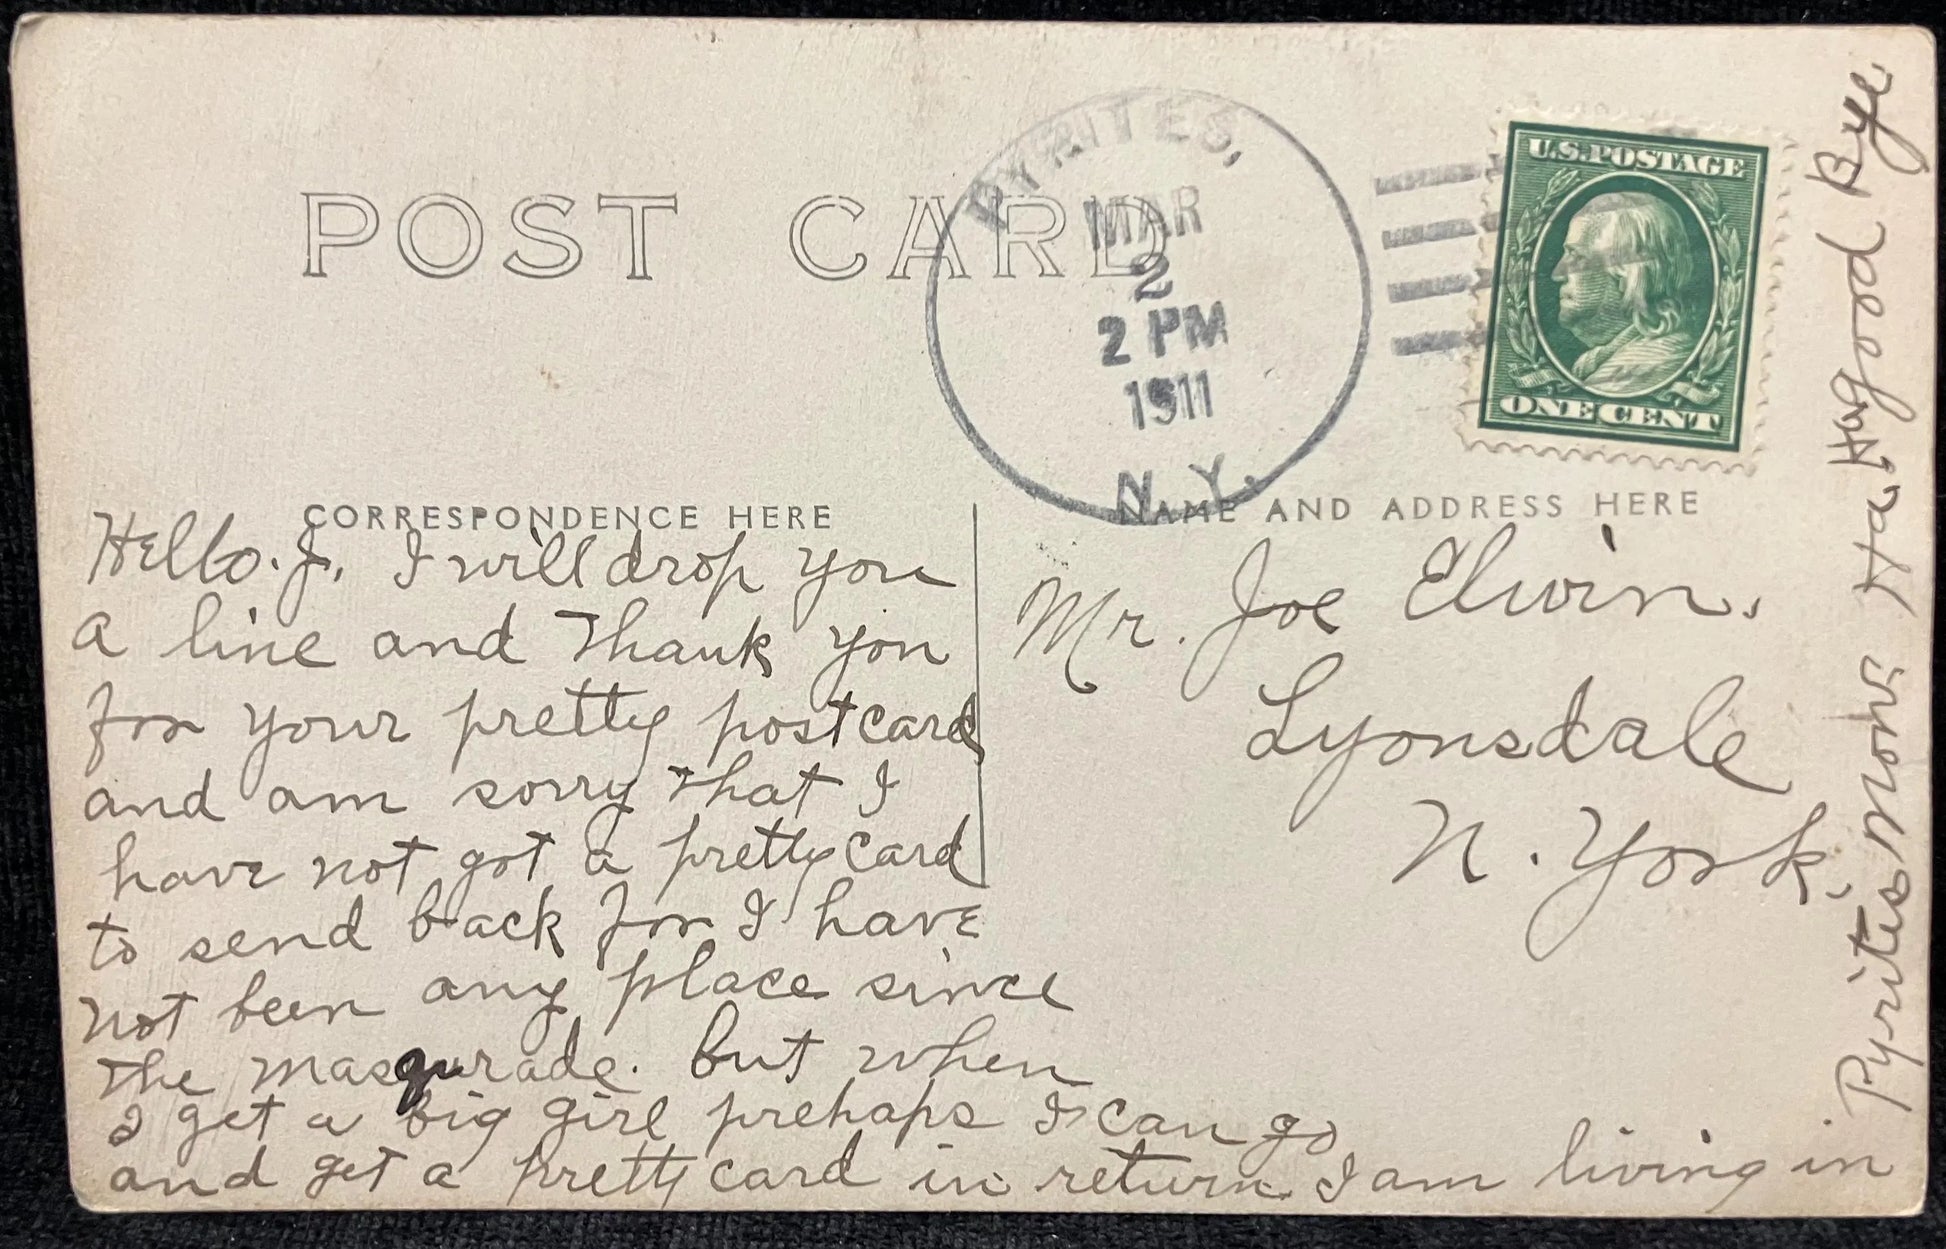 POST CARD
PYRITES,
MAR
2
2 PM
1911
N.Y.
U.S. POSTAGE
ONE CENT
CORRESPONDENCE HERE
NAME AND ADDRESS HERE
Hello. J. I will drop you
a line and thank you
for your pretty postcard
and am sorry that I
have not got a pretty card
to send back for I have
not been any place since
the masqurade. but when
I get a big girl prehaps I can go
and get a pretty card in return. I am living in
Pyrites now. Ha. Ha good Bye
Mr. Joe Elwin.
Lyonsdale
N. York.